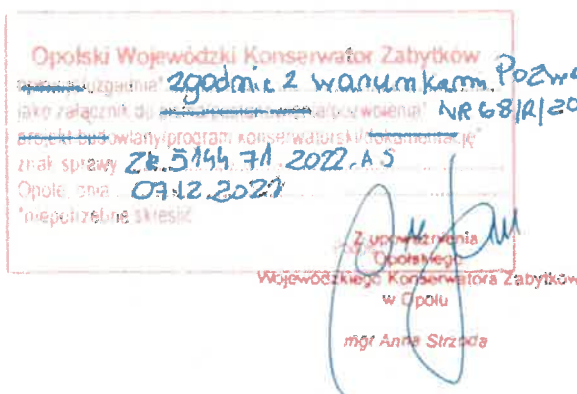 Opolski Wojewódzki Konserwator Zabytków
uzgadnia* zgodnie z warunkami Pozwo
jako załącznik do pozwolenia* NR 68/R/20
projekt budowlany/program konserwatorski/dokumentację*
znak sprawy ZK.5144.71.2022.AS
Opole, dnia 07.12.2022
*niepotrzebne skreślić
Z upoważnienia
Opolskiego
Wojewódzkiego Konserwatora Zabytków
w Opolu
mgr Anna Strzoda